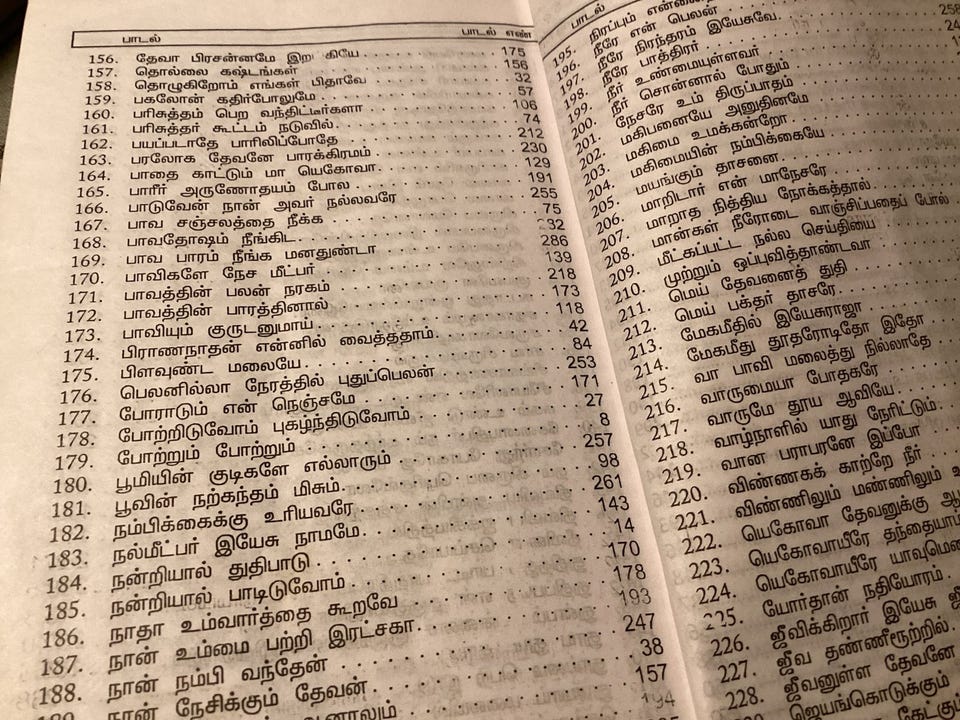 பாடல் பாடல் எண்
156. தேவா பிரசன்னமே இற கியே 175
157. தொல்லை கஷ்டங்கள் 156
158. தொழுகிறோம் எங்கள் பிதாவே 32
159. பகலோன் கதிர்போலுமே 57
160. பரிசுத்தம் பெற வந்திட்டீர்களா 106
161. பரிசுத்தர் கூட்டம் நடுவில் 74
162. பயப்படாதே பாரிலிப்போதே 212
163. பரலோக தேவனே பாரக்கிரமம் 230
164. பாதை காட்டும் மா யெகோவா 129
165. பாரீர் அருணோதயம் போல 191
166. பாடுவேன் நான் அவர் நல்லவரே 255
167. பாவ சஞ்சலத்தை நீக்க 75
168. பாவதோஷம் நீங்கிட 32
169. பாவ பாரம் நீங்க மனதுண்டா 286
170. பாவிகளே நேச மீட்பர் 139
171. பாவத்தின் பலன் நரகம் 218
172. பாவத்தின் பாரத்தினால் 173
173. பாவியும் குருடனுமாய் 118
174. பிராணநாதன் என்னில் வைத்ததாம் 42
175. பிளவுண்ட மலையே 84
176. பெலனில்லா நேரத்தில் புதுப்பெலன் 253
177. போராடும் என் நெஞ்சமே 171
178. போற்றிடுவோம் புகழ்ந்திடுவோம் 27
179. போற்றும் போற்றும் 8
180. பூமியின் குடிகளே எல்லாரும் 257
181. பூவின் நற்கந்தம் மிசும் 98
182. நம்பிக்கைக்கு உரியவரே 261
183. நல்மீட்பர் இயேசு நாமமே 143
184. நன்றியால் துதிபாடு 14
185. நன்றியால் பாடிடுவோம் 170
186. நாதா உம்வார்த்தை கூறவே 178
187. நான் உம்மை பற்றி இரட்சகா 193
188. நான் நம்பி வந்தேன் 247
189. நான் நேசிக்கும் தேவன் 38
157
194
பாடல்
195. நிரப்பும் என்னை
196. நீரே என் பெலன்
197. நீரே நிரந்தரம் இயேசுவே 258
198. நீரே பாத்திரர்
199. நீர் உண்மையுள்ளவர்
200. நீர் சொன்னால் போதும்
201. நேசரே உம் திருப்பாதம்
202. மகிபனையே அனுதினமே
203. மகிமை உமக்கன்றோ
204. மகிமையின் நம்பிக்கையே
205. மயங்கும் தாசனை
206. மாறிடார் என் மாநேசரே
207. மாறாத நித்திய நோக்கத்தால்
208. மான்கள் நீரோடை வாஞ்சிப்பதைப் போல்
209. மீட்கப்பட்ட நல்ல செய்தியை
210. முற்றும் ஒப்புவித்தாண்டவா
211. மெய் தேவனைத் துதி
212. மெய் பக்தர் தாசரே
213. மேகமீதில் இயேசுராஜா
214. மேகமீது தூதரோடிதோ இதோ
215. வா பாவி மலைத்து நில்லாதே
216. வாருமையா போதகரே
217. வாருமே தூய ஆவியே
218. வாழ்நாளில் யாது நேரிட்டும்
219. வான பராபரனே இப்போ
220. விண்ணகக் காற்றே நீர்
221. விண்ணிலும் மண்ணிலும்
222. யெகோவா தேவனுக்கு
223. யெகோவாயீரே தந்தையாம்
224. யெகோவாயீரே
225. யோர்தான் நதியோரம்
226. ஜீவிக்கிறார் இயேசு
227. ஜீவ தண்ணீரூற்றில்
228. ஜீவனுள்ள தேவனே
ஜெயங்கொடுக்கும்